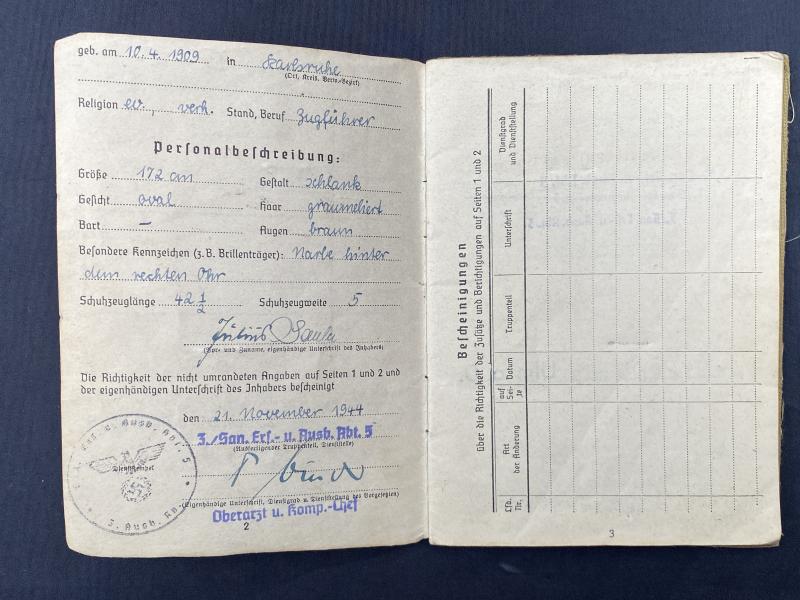 geb. am 10.4.1909 in Karlsruhe
(Ort, Kreis, Verw.-Bezirk)
Religion ev., verh. Stand, Beruf Zugführer
Personalbeschreibung:
Größe 172 cm Gestalt schlank
Gesicht oval Haar graumeliert
Bart – Augen braun
Besondere Kennzeichen (z.B. Brillenträger): Narbe hinter
dem rechten Ohr
Schuhzeuglänge 42 1/2 Schuhzeugweite 5
Julius
(Vor- und Zuname, eigenhändige Unterschrift des Inhabers)
Die Richtigkeit der nicht umrandeten Angaben auf Seiten 1 und 2 und
der eigenhändigen Unterschrift des Inhabers bescheinigt
den 21. November 1944
3./San. Ers.- u. Ausb. Abt. 5
(Ausfertigender Truppenteil, Dienststelle)
(Eigenhändige Unterschrift, Dienstgrad u. Dienststellung des Vorgesetzten)
Oberarzt u. Komp.-Chef
2
Dienststempel
Ers. u. Ausb. Abt. 5
Bescheinigungen
über die Richtigkeit der Zusätze und Berichtigungen auf Seiten 1 und 2
Lfd. Nr.
Art der Änderung
auf Sei- te
Datum
Truppenteil
Unterschrift
Dienstgrad und Dienststellung
3